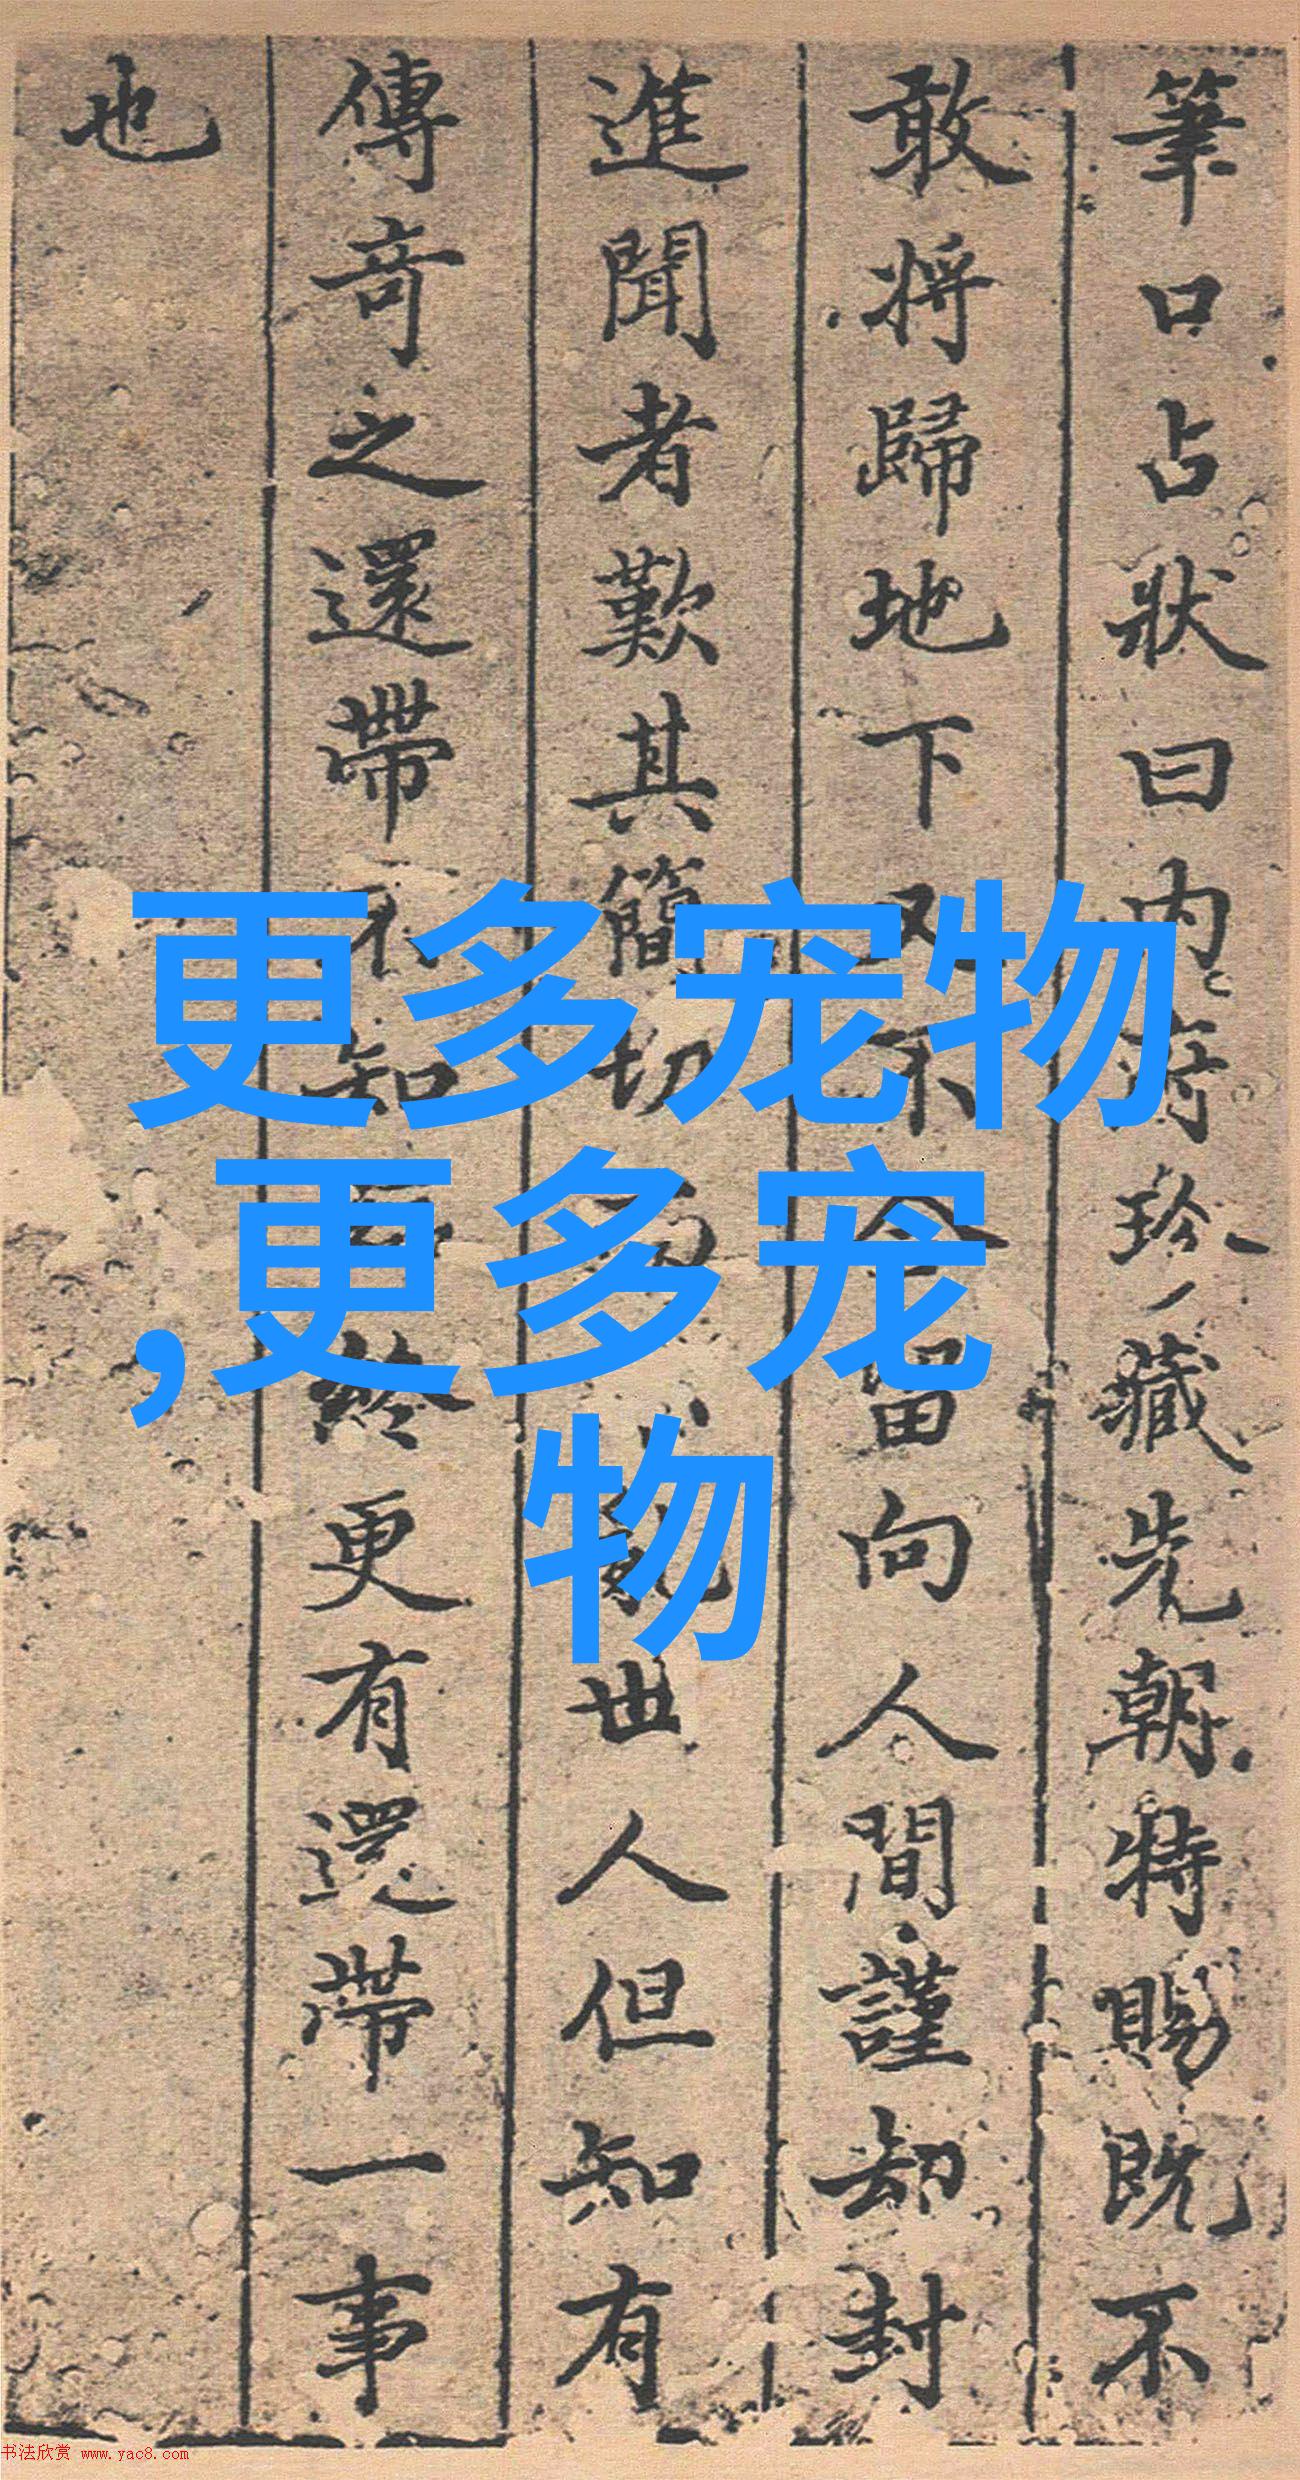 筆口占狀曰内府珍藏先朝特賜既不
敢將歸地下又不合留向人間謹却封
進聞者歎其簡切世人但知有
傳奇之還帶不知終更有還帶一事
也
更多宠物
,更多宠
物
书法欣赏 www.yac8.com